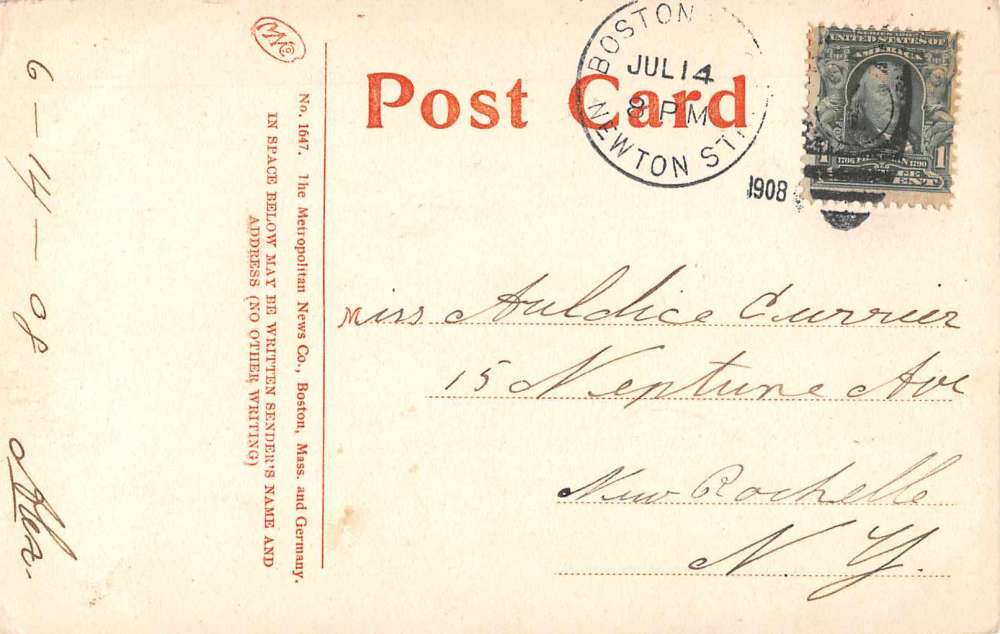 MNCo
Post Card
BOSTON
JUL 14
8 PM
NEWTON STA.
1908
SERIES 1902
UNITED STATES OF
AMERICA
1706 FRANKLIN 1790
1 1
ONE
CENT
No. 1647. The Metropolitan News Co., Boston, Mass. and Germany.
IN SPACE BELOW MAY BE WRITTEN SENDER'S NAME AND
ADDRESS (NO OTHER WRITING)
6-14-08
Miss Auldice Currier
15 Neptune Ave
New Rochelle
N. Y.